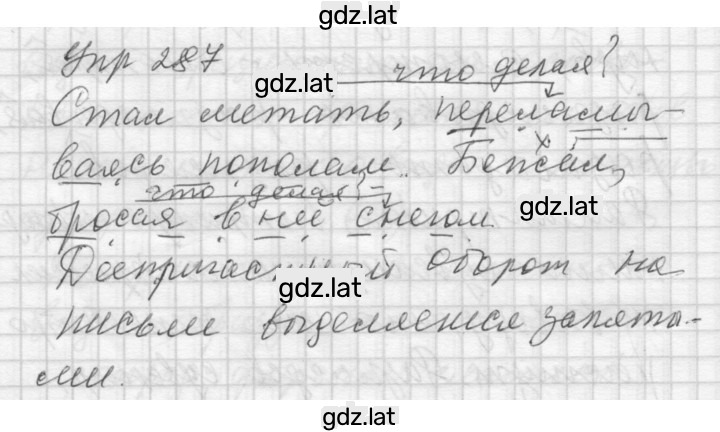 gdz.lat
Упр 287
что делая?
gdz.lat
Стал метать, переламы-
ваясь пополам. Бежал,
что делая?
бросая в неё снегом
gdz.lat
Деепричастный оборот на
gdz.lat
письме выделяется запята-
ми.
gdz.lat